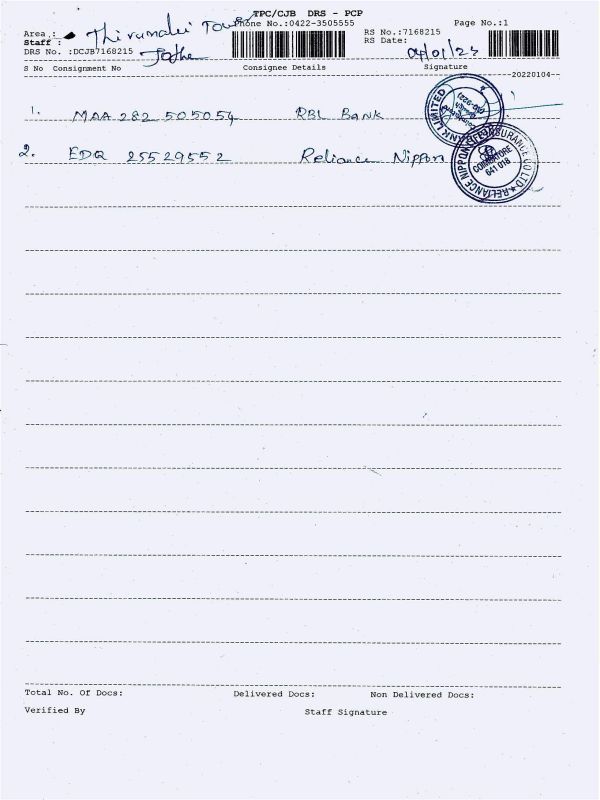 TPC/CJB DRS - PCP
Phone No.:0422-3505555
Page No.:1
Area : Thirumalai Tower
Staff :
DRS No. :DCJB7168215
RS No.:7168215
RS Date: 04/01/23
S No Consignment No Consignee Details Signature
20220104
1. MAA 282 505054 RBL Bank
2. EDQ 25529552 Reliance Nippon
BANK LIMITED
RELIANCE NIPPON LIFE INSURANCE CO LTD
COIMBATORE
641 018
Total No. Of Docs: Delivered Docs: Non Delivered Docs:
Verified By Staff Signature